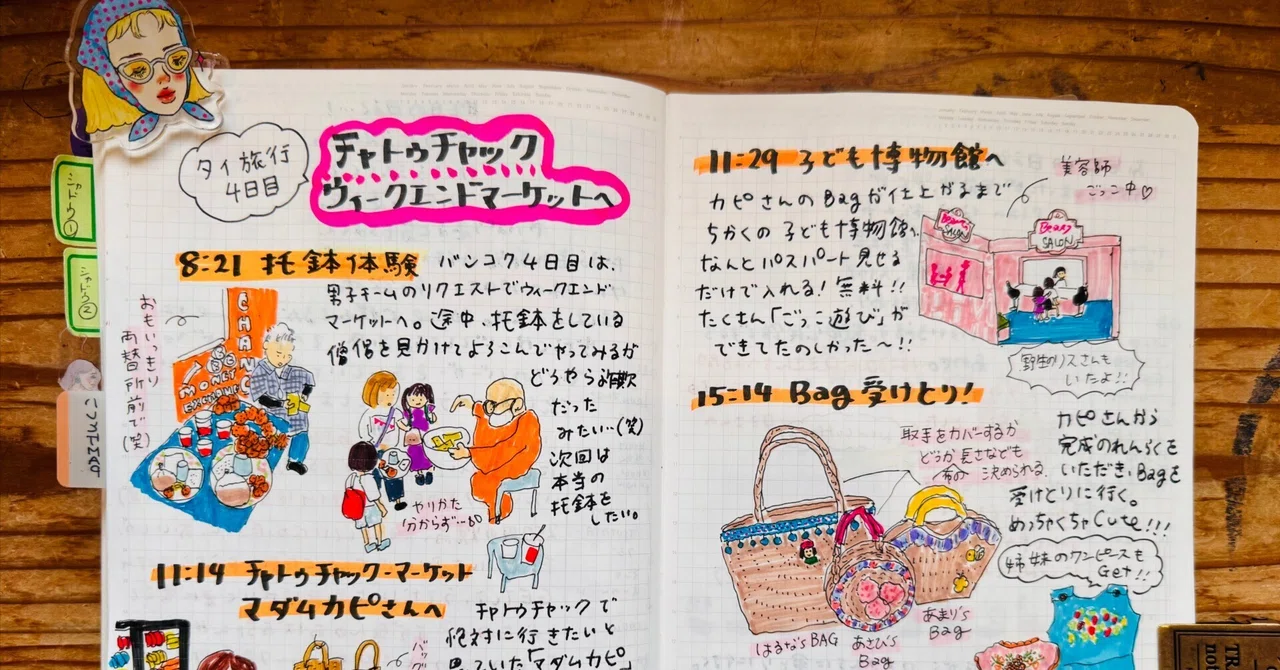 シャドウ①
シャドウ②
タイ旅行
4日目
チャトゥチャック
ウィークエンドマーケットへ
8:21 托鉢体験
バンコク4日目は、
男子チームのリクエストでウィークエンド
マーケットへ。途中、托鉢をしている
僧侶を見かけてよろこんでやってみるが
どうやら
だった
みたい…(笑)
次回は
本当の
托鉢を
したい。
おもいっきり
両替所前で
(笑)
CHANG
やりかた
分からず…
11:14 チャトゥチャック・マーケット
マダムカピさんへ
チャトゥチャックで
絶対に行きたいと
思っていた「マダムカピ」
11:29 子ども博物館へ
カピさんのBagが仕上がるまで
ちかくの子ども博物館へ。
なんとパスパート見せる
だけで入れる!無料!!
たくさん「ごっこ遊び」が
できてたのしかった〜!!
美容師
ごっこ中♡
Beauty
SALON
Beauty
SALON
野生のリスさんも
いたよ!!
15:14 Bag受けとり!
取手をカバーするか
どうか長さなども
決められる。
カピさんから
完成のれんらくを
いただき、Bagを
受けとりに行く。
めっちゃくちゃCute!!!
姉妹のワンピースも
Get!!
はるな's BAG
あさひ's
Bag
あまり's
Bag